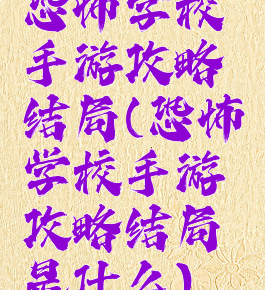 恐怖学校
手游攻略
结局(恐怖
学校手游
攻略结局
是什么)